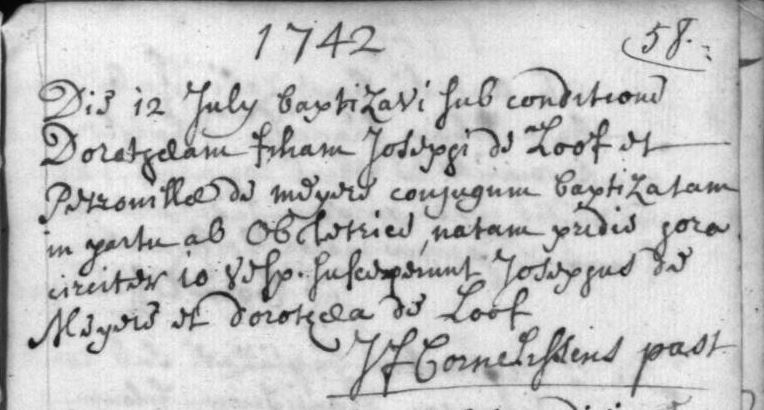 1742
58.
Die 12 July baptizavi sub conditione
Dorotheam filiam Josephi de Loof et
Petronillæ de meyere conjugum baptizatam
in partu ab Obstetrice, natam pridie hora
circiter 10 vesp. susceperunt Josephus de
Meyere et dorothea de Loof
JF Cornelissens past